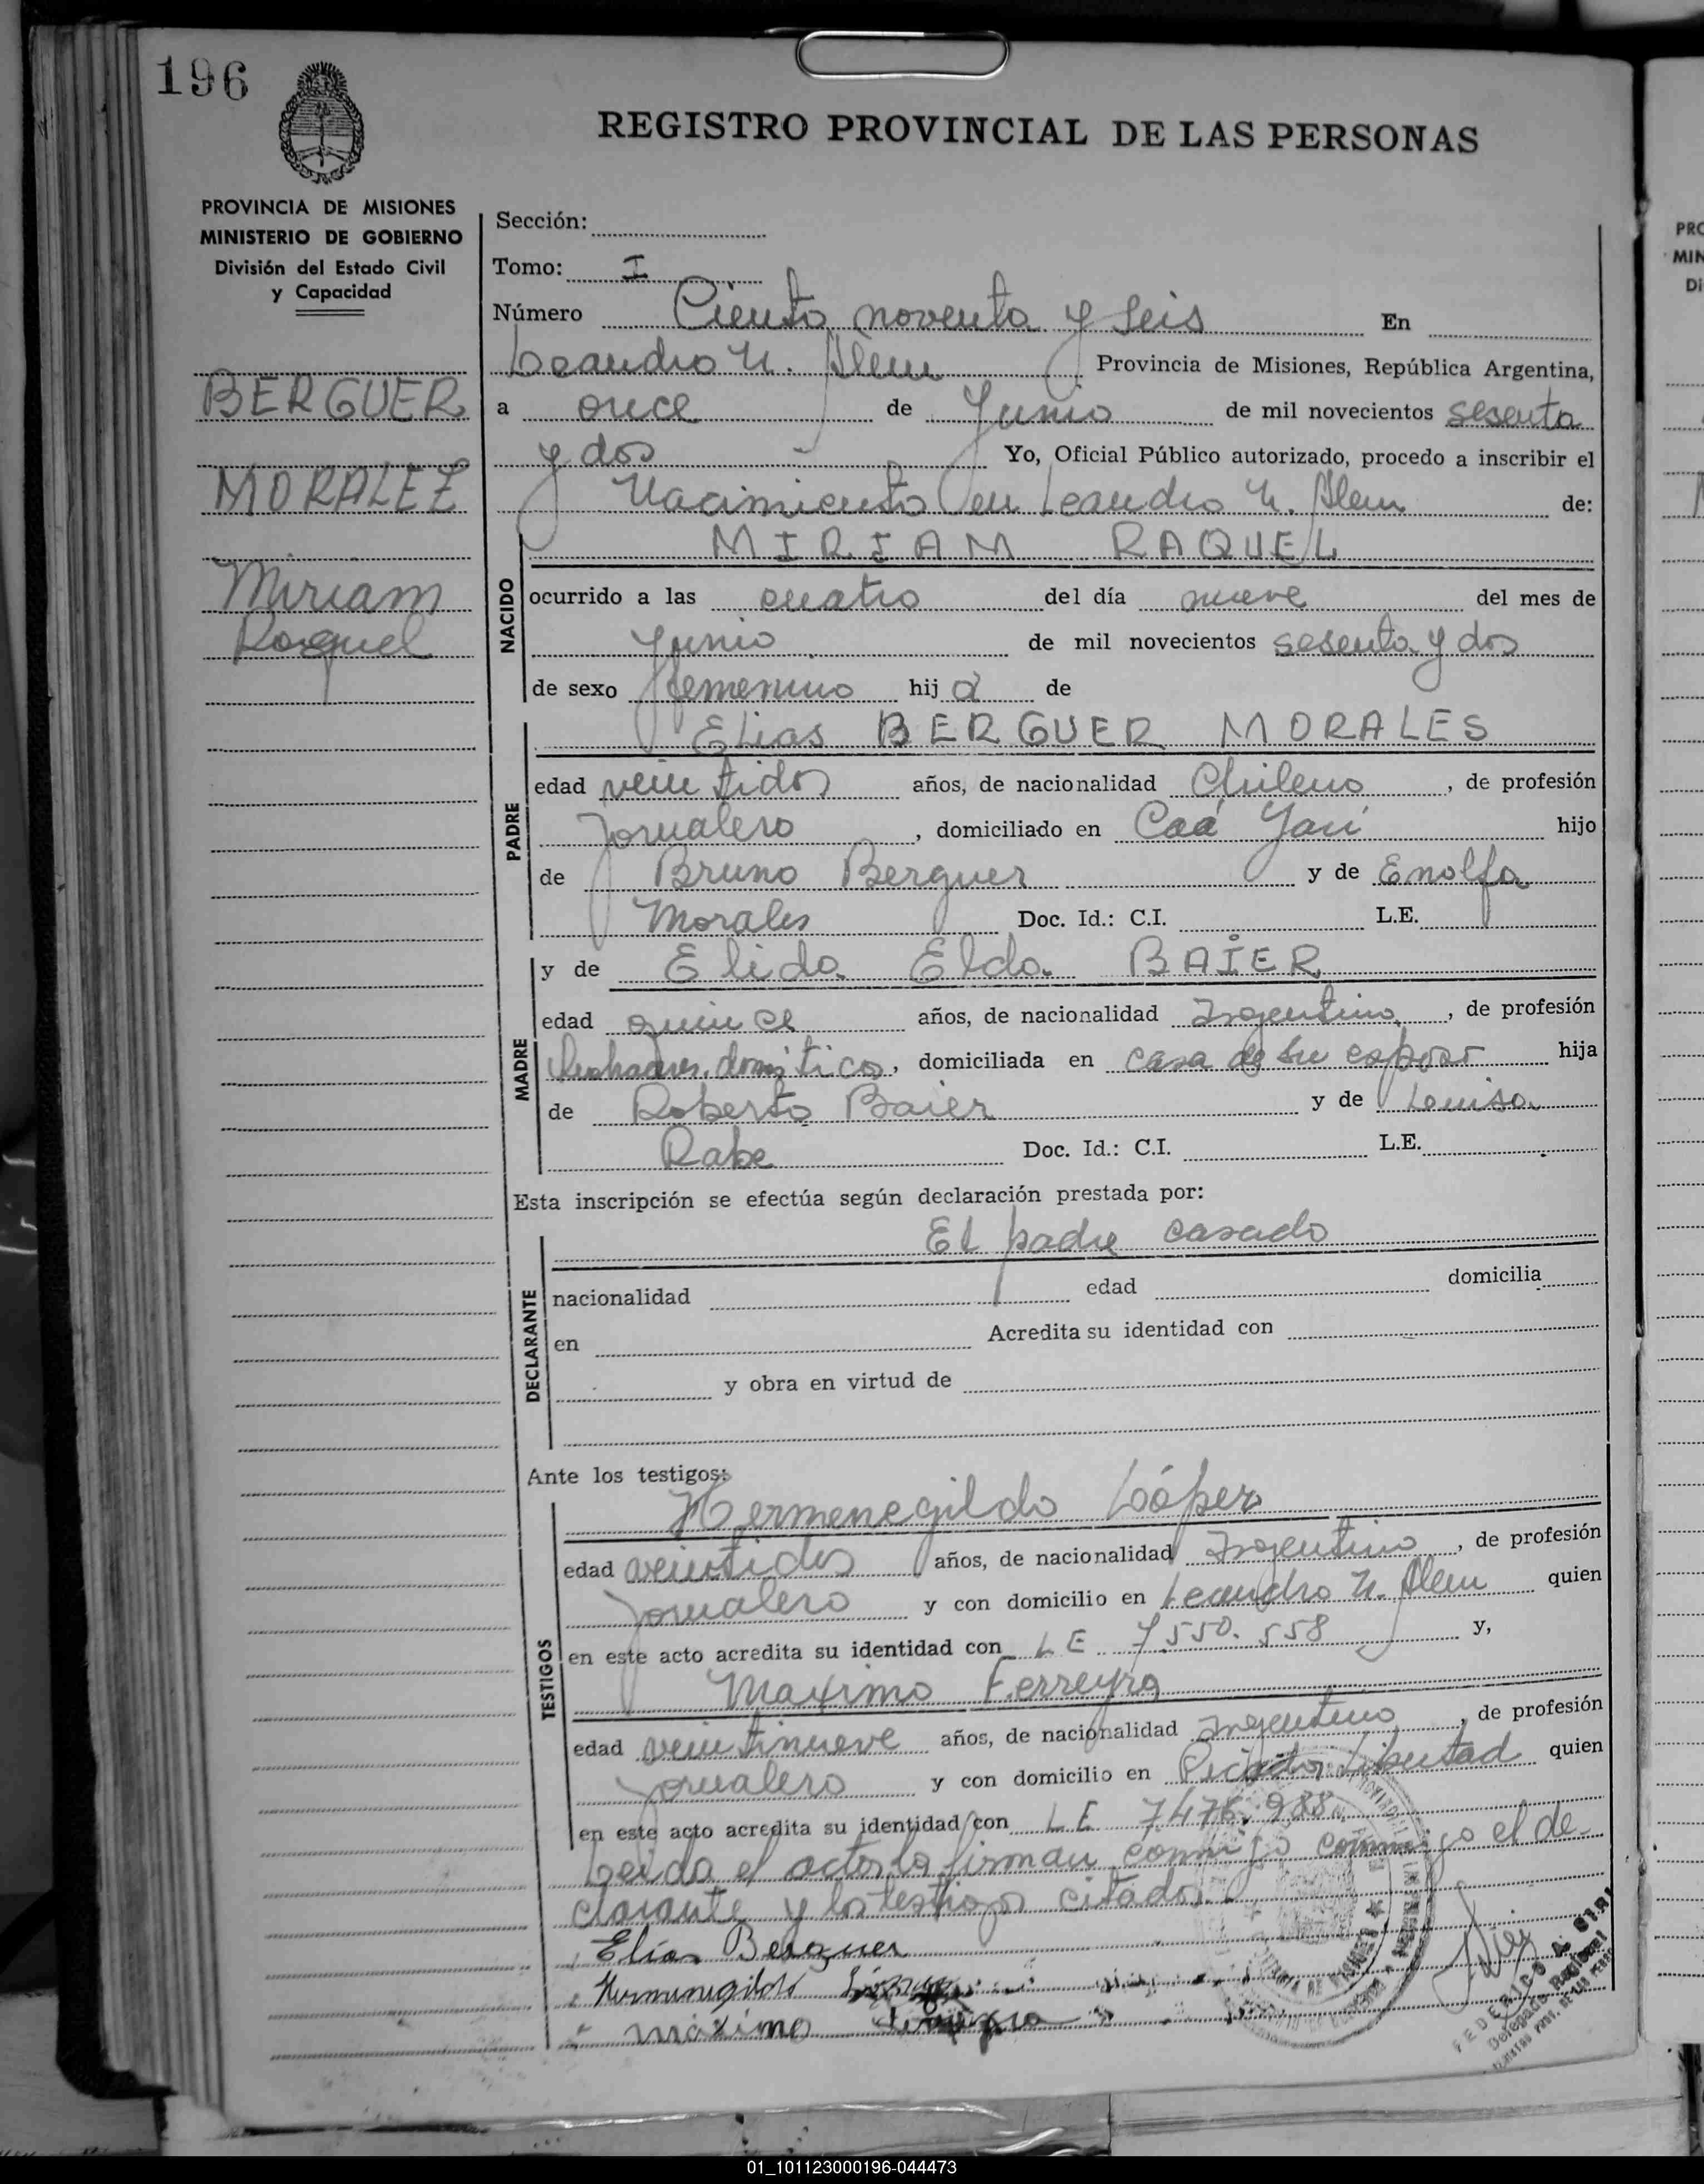 196
REGISTRO PROVINCIAL DE LAS PERSONAS
PROVINCIA DE MISIONES
MINISTERIO DE GOBIERNO
División del Estado Civil
y Capacidad
BERGUER
MORALEZ
Miriam
Raquel
Sección:
Tomo: I
Número Ciento noventa y seis En
Leandro N. Alem Provincia de Misiones, República Argentina,
a once de Junio de mil novecientos sesenta
y dos Yo, Oficial Público autorizado, procedo a inscribir el
Nacimiento en Leandro N. Alem de:
MIRIAM RAQUEL
NACIDO
ocurrido a las cuatro del día nueve del mes de
Junio de mil novecientos sesenta y dos
de sexo femenino hij a de
Elias BERGUER MORALES
PADRE
edad veintidos años, de nacionalidad Chileno, de profesión
Jornalero, domiciliado en Caá Yarí hijo
de Bruno Berguer y de Enolfa
Morales Doc. Id.: C.I. L.E.
y de Elida Elda BAIER
MADRE
edad quince años, de nacionalidad Argentina, de profesión
domiciliada en casa de su esposo hija
de Roberto Baier y de Louisa
Rabe Doc. Id.: C.I. L.E.
Esta inscripción se efectúa según declaración prestada por:
El padre casado
DECLARANTE
nacionalidad edad domicilia
en Acredita su identidad con
y obra en virtud de
Ante los testigos:
Hermenegildo López
TESTIGOS
edad veintidos años, de nacionalidad Argentino, de profesión
Jornalero y con domicilio en Leandro N. Alem quien
en este acto acredita su identidad con LE 7.550.558 y,
Maximo Ferreyra
edad veintinueve años, de nacionalidad Argentino, de profesión
Jornalero y con domicilio en Picada Libertad quien
en este acto acredita su identidad con LE 7.476.988
Leida el acta la firman conmigo conmigo el de-
clarante y los testigos citados.
Elías Berguer
Hermenegildo
maximo
FEDERICO A.
01_101123000196-044473